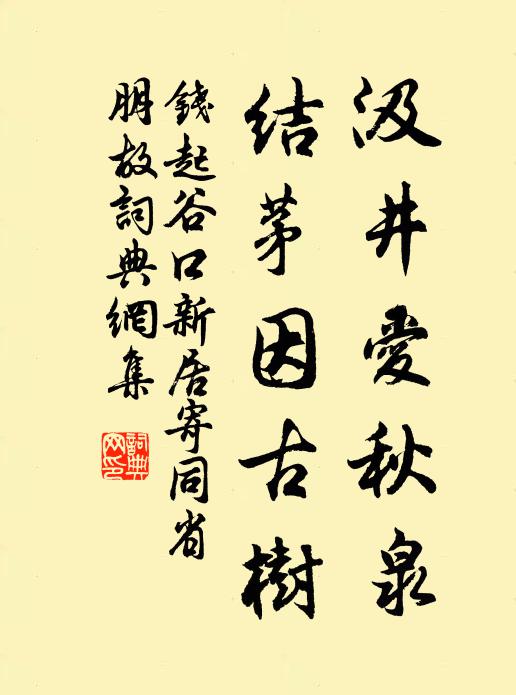 汲井愛秋泉
結茅因古樹
錢起谷口新居寄同省
朋故詞典網集
詞典网印